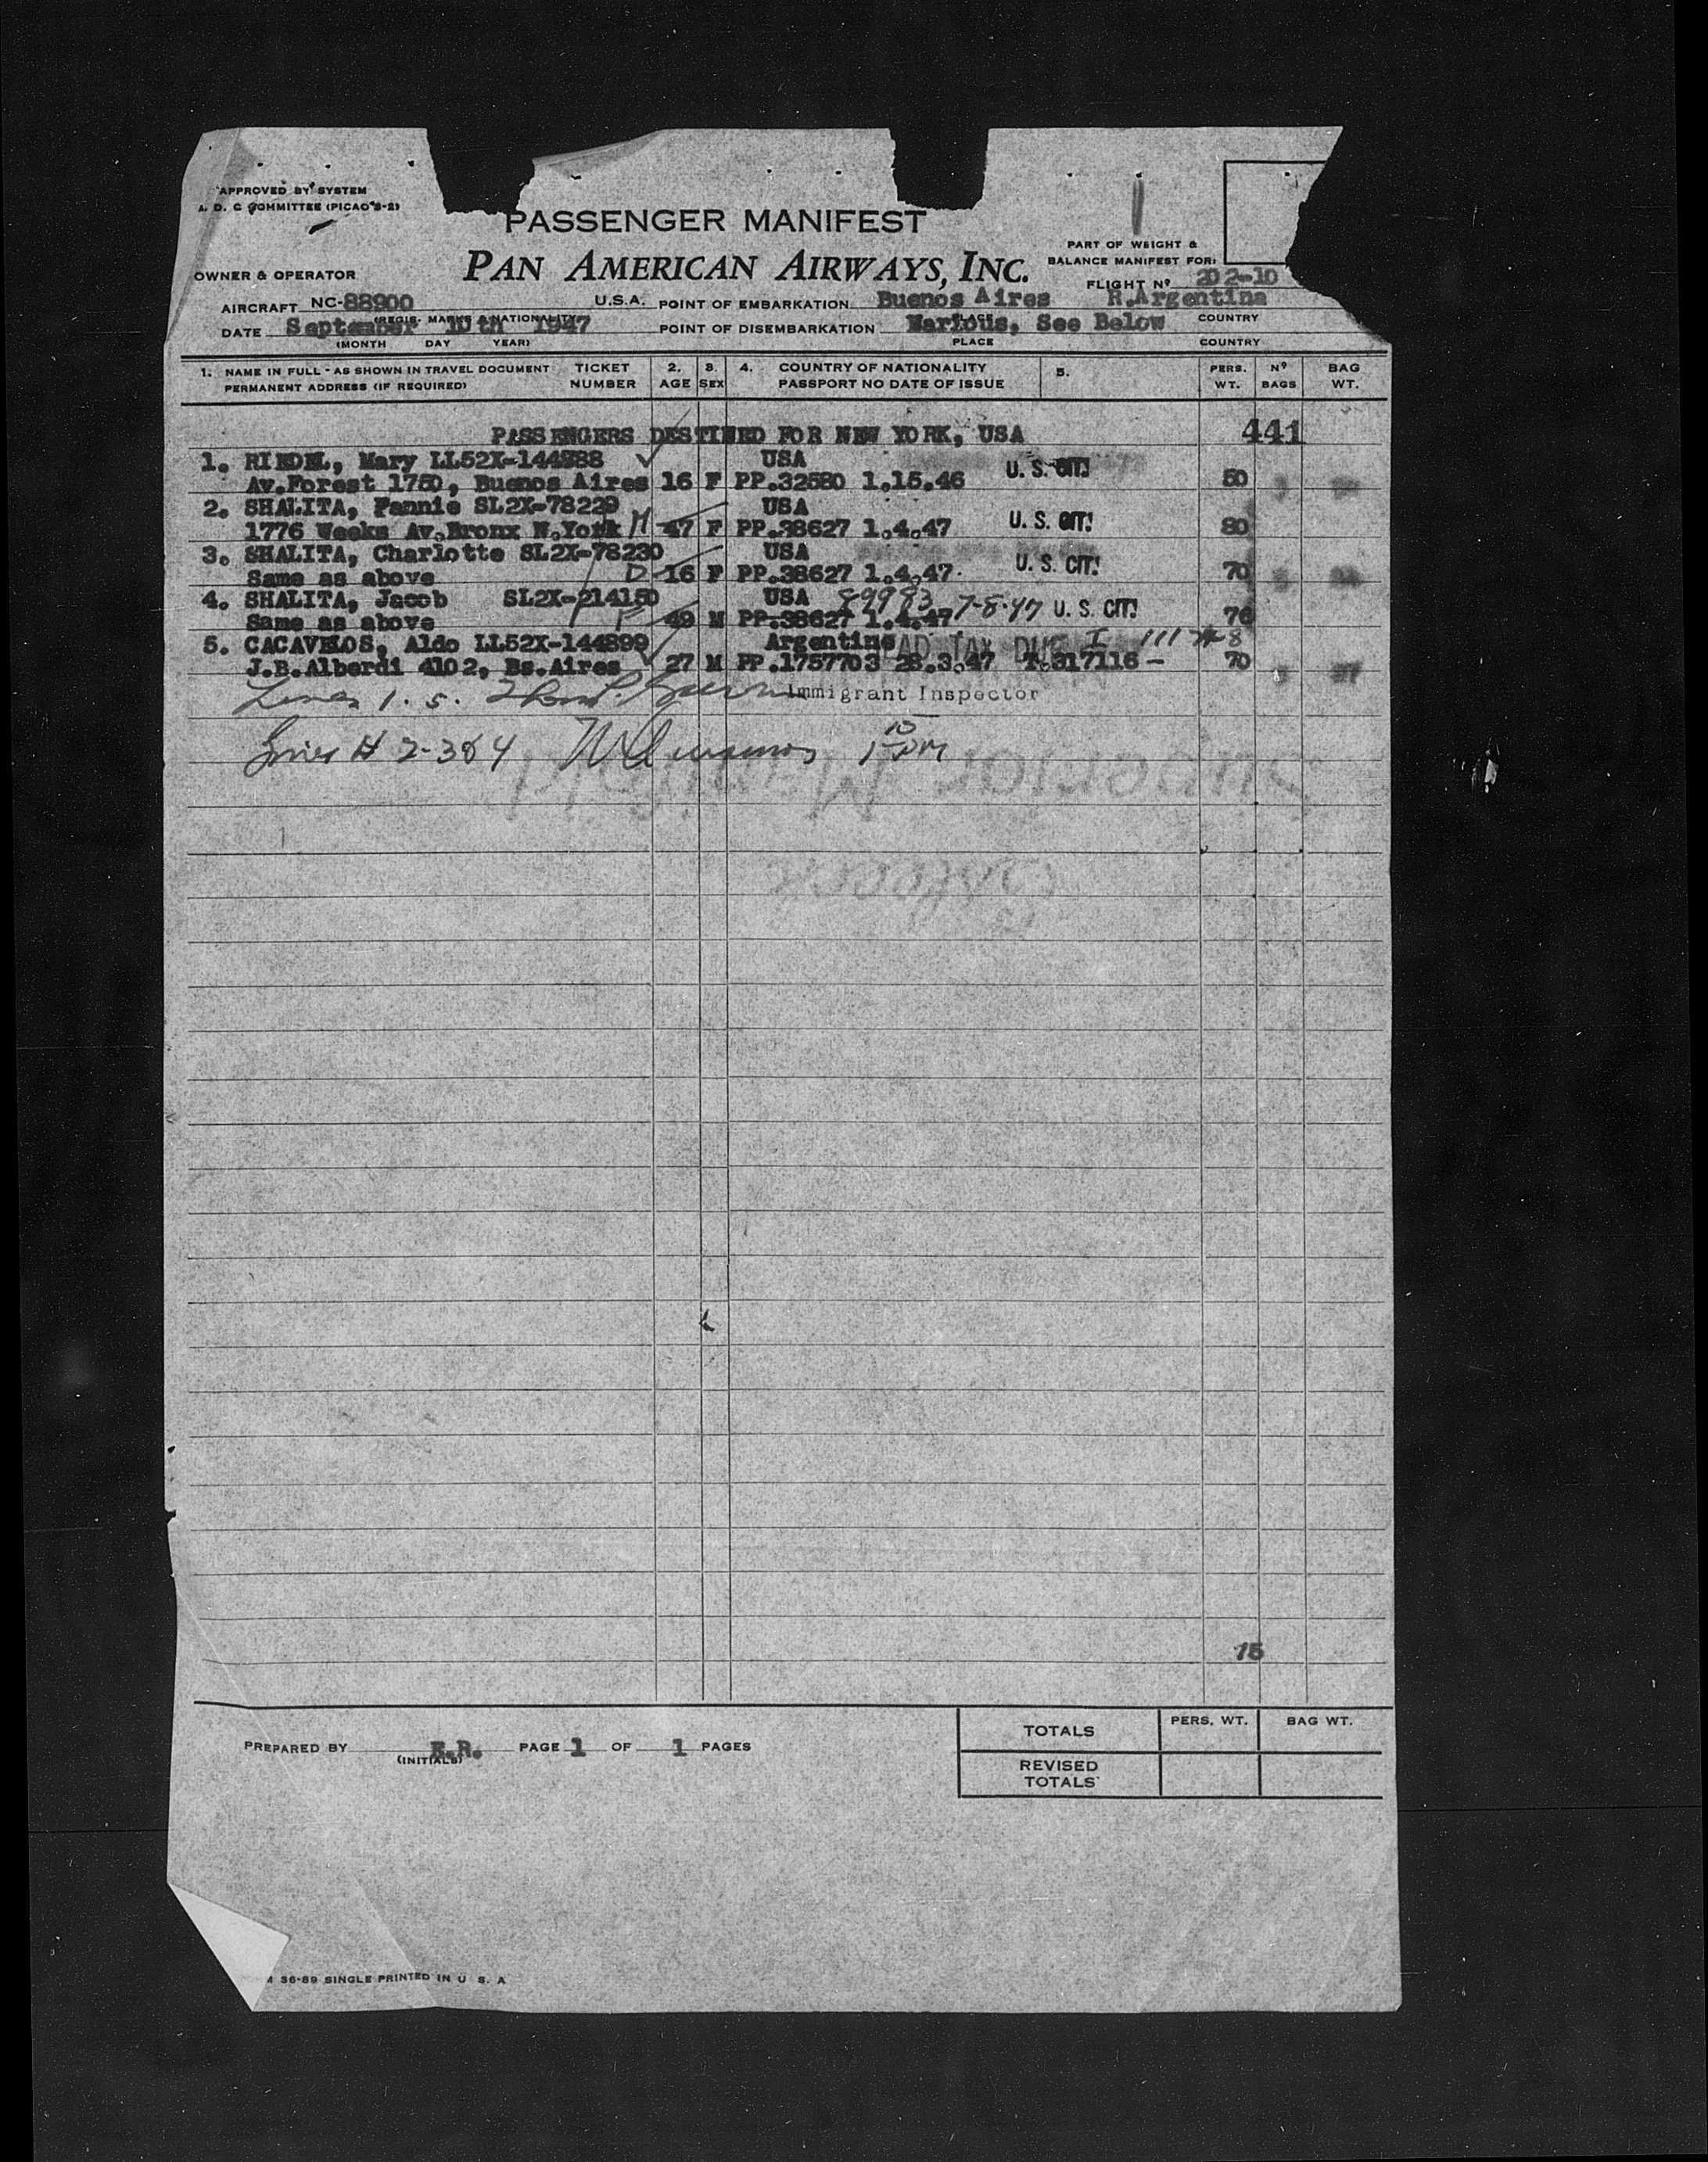 APPROVED BY SYSTEM
A. D. C COMMITTEE (PICAO 8-2)
PASSENGER MANIFEST
PAN AMERICAN AIRWAYS, INC.
PART OF WEIGHT &
BALANCE MANIFEST FOR:
OWNER & OPERATOR
FLIGHT Nº 202-10
AIRCRAFT NC-88900 U.S.A. POINT OF EMBARKATION Buenos Aires R.Argentina
(REGIS. MARKS & NATIONALITY) PLACE COUNTRY
DATE September 10th 1947 POINT OF DISEMBARKATION Various, See Below
(MONTH DAY YEAR) PLACE COUNTRY
1. NAME IN FULL - AS SHOWN IN TRAVEL DOCUMENT TICKET 2. 3. 4. COUNTRY OF NATIONALITY 5. PERS. Nº BAG
PERMANENT ADDRESS (IF REQUIRED) NUMBER AGE SEX PASSPORT NO DATE OF ISSUE WT. BAGS WT.
PASSENGERS DESTINED FOR NEW YORK, USA 441
1. RIEDEL, Mary LL52X-144888 USA U. S. CIT!
Av.Forest 1750, Buenos Aires 16 F PP.32580 1.15.46 50
2. SHALITA, Fannie SL2X-78229 USA
1776 Weeks Av.Bronx N.York M 47 F PP.38627 1.4.47 U. S. CIT! 80
3. SHALITA, Charlotte SL2X-78230 USA
Same as above D 16 F PP.38627 1.4.47. U. S. CIT! 70
4. SHALITA, Jacob SL2X-214150 USA 89983 7-8-47 U. S. CIT!
Same as above F 49 M PP.38627 1.4.47 76
5. CACAVELOS, Aldo LL52X-144899 Argentine HEAD TAX DUE I
J.B.Alberdi 4102, Bs.Aires 27 M PP.1757703 28.3.47 T.317116- 70
Lines 1. 5. Immigrant Inspector
Lines # 2-3&4
75
PREPARED BY E.R. PAGE 1 OF 1 PAGES
(INITIALS)
TOTALS PERS. WT. BAG WT.
REVISED
TOTALS
36-89 SINGLE PRINTED IN U S. A